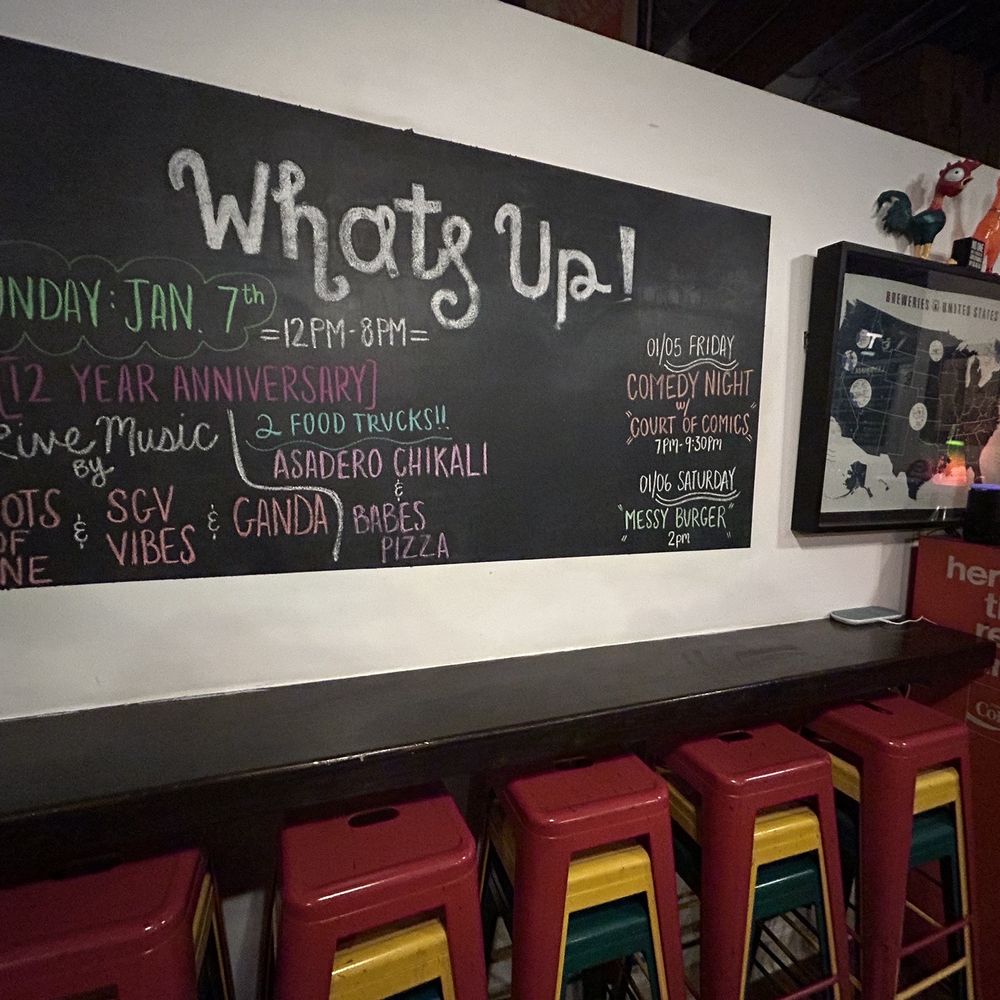 Whats Up!
UNDAY: JAN. 7th
=12PM-8PM=
[12 YEAR ANNIVERSARY]
Live Music
By
OTS
OF
NE
&
SGV
VIBES
&
GANDA
2 FOOD TRUCKS!!
ASADERO CHIKALI
&
BABES
PIZZA
01/05 FRIDAY
COMEDY NIGHT
w/
"COURT OF COMICS"
7PM-9:30PM
01/06 SATURDAY
"MESSY BURGER"
2pm
BREWERIES UNITED STATES
her
t
re
Co